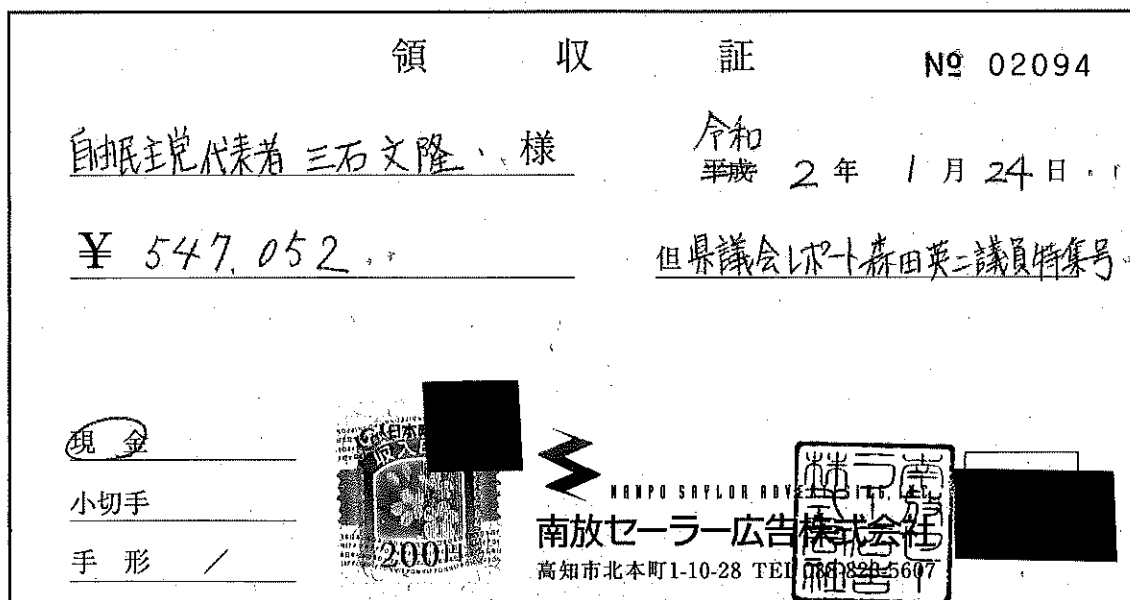 領収証
№ 02094
自由民主党代表者 三石文隆 様
令和
平成 2年 1月 24日
¥ 547,052
但県議会レポート森田英二議員特集号
現金
小切手
手形 /
200円
NANPO SAYLOR ADVERTISING
南放セーラー広告株式会社
高知市北本町1-10-28 TEL 088-823-5607